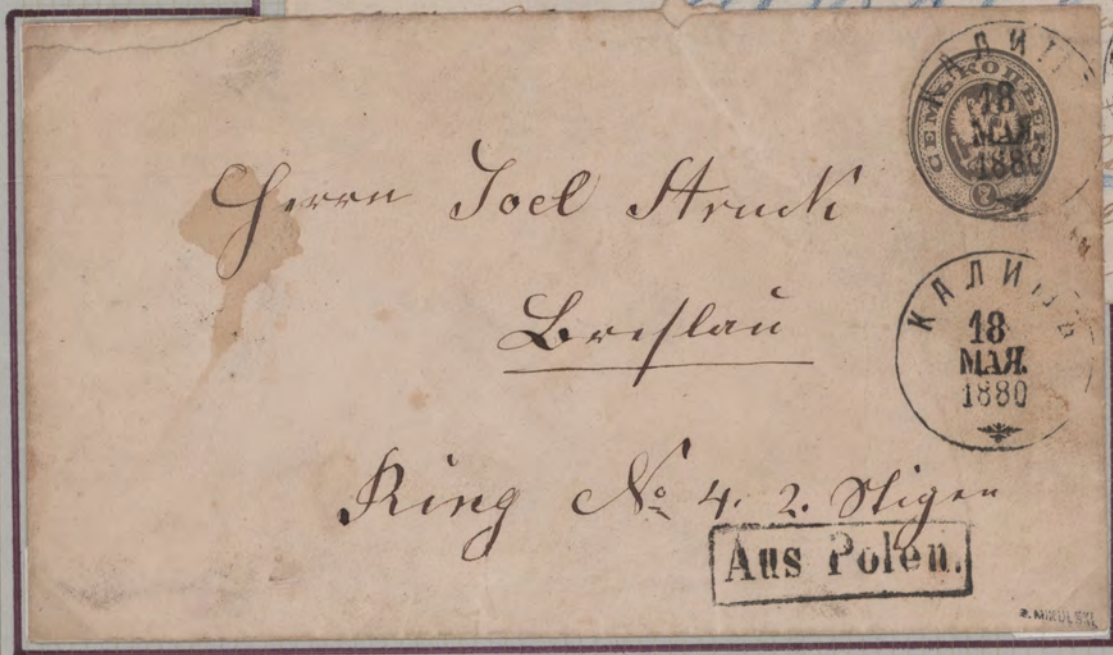 КАЛИ
СЕМЬ КОПѢЕКЪ
18
МАЯ
1880
7
Herrn Joel Struck
Breslau
КАЛИШЪ
18
МАЯ.
1880
Ring No 4. 2. Stigen
Aus Polen.
Z. MIKULSKI